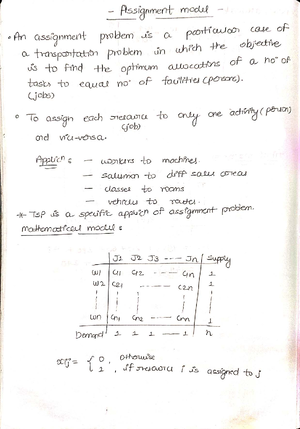 - Assignment model -
• An assignment problem is a particular case of
a transportation problem in which the objective
is to find the optimum allocations of a no· of
tasks to equal no· of facilities (persons).
(jobs)
• To assign each resource to only one activity (person)
(job)
and vice-versa.
Applicn : — workers to machines.
— salesman to diff sales areas
— classes to rooms
— vehicles to routes.
* TSP is a specific applicn of assignment problem.
Mathematical model :
J1 J2 J3 ---- Jn Supply
W1 C11 C12 ---- C1n 1
W2 C21 ---- C2n 1
Wn Cn1 Cn2 ---- Cnn 1
Demand 1 1 1 — 1 n
xij = { 0, otherwise
1, if resource i is assigned to j